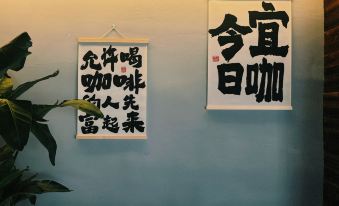 允许喝
咖啡
的人先
富起来
今日
宜咖